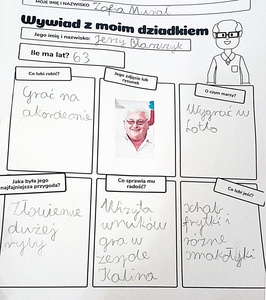 MOJE IMIĘ I NAZWISKO Zofia Musał
Wywiad z moim dziadkiem
Jego imię i nazwisko: Jerzy Błaszczyk
Ile ma lat? 63
Co lubi robić?
Grać na
akordeonie
Jego zdjęcie lub
rysunek
O czym marzy?
Wygrać w
lotto
Jaka była jego
najfajniejsza przygoda?
Złowienie
dużej
ryby
Co sprawia mu
radość?
Wizyta
wnuków
gra w
zespole
Kalina
Co lubi jeść?
schab
frytki i
różne
smakołyki